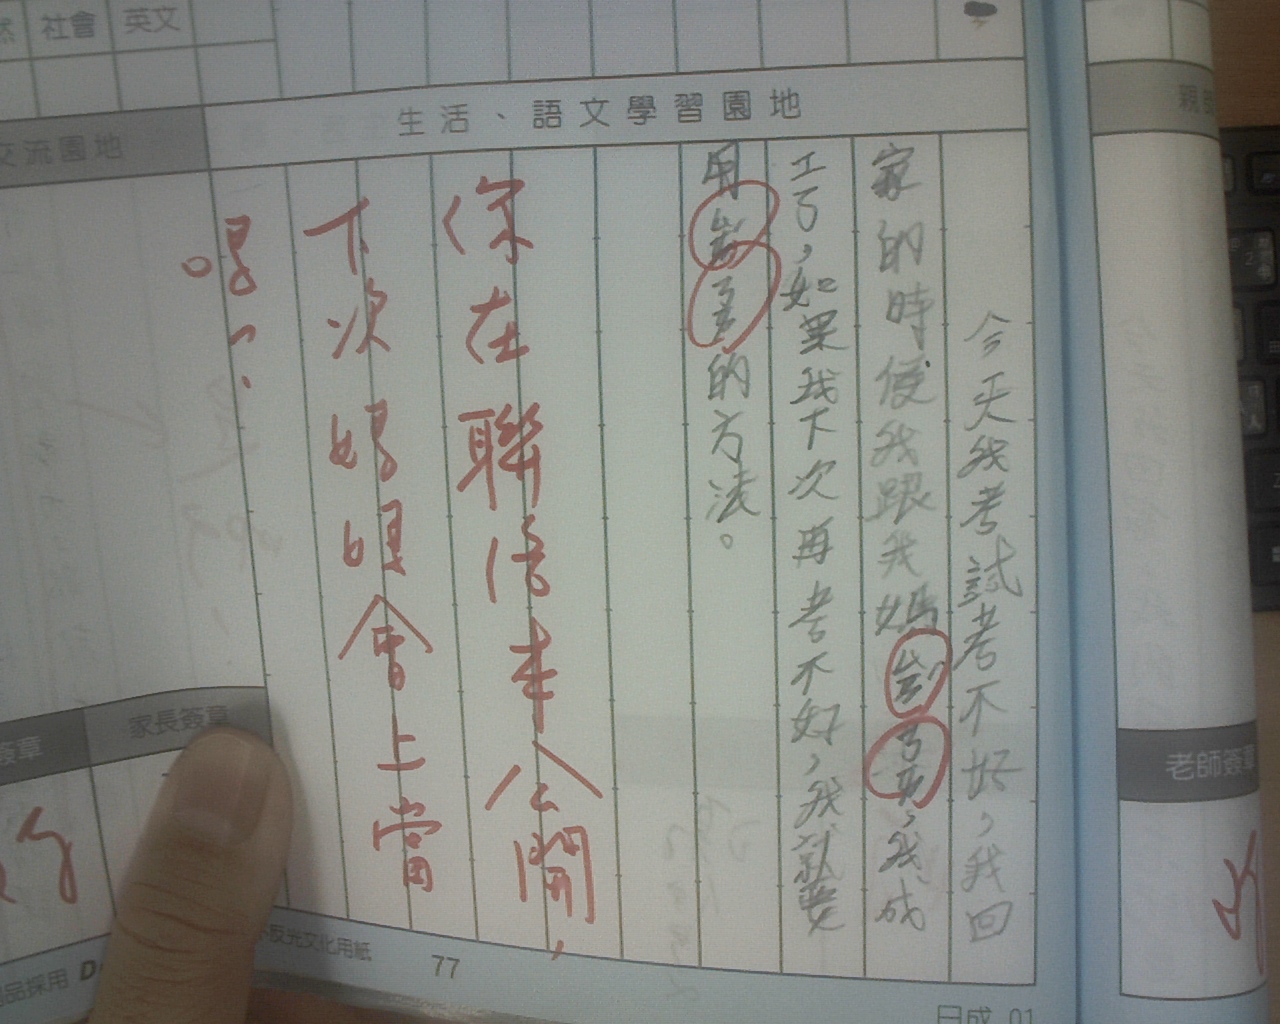 社會
英文
生活、語文學習園地
交流園地
今天我考試考不好,我回
家的時侯我跟我媽
我成
工了,如果我下次再考不好,我就要
用
的方法。
你在聯信本公開,
下次媽媽會上當
嗎?
家長簽章
簽章
老師簽章
不反光文化用紙
品採用
77
日成 01